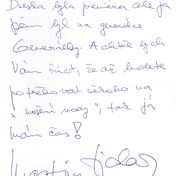 Dneska byla premiéra, ale já
jsem byl na generálce
Generálky. A chtěl bych
Vám říct, že až budete
potřebovat někoho na
"nošení vody", tak já
mám čas!